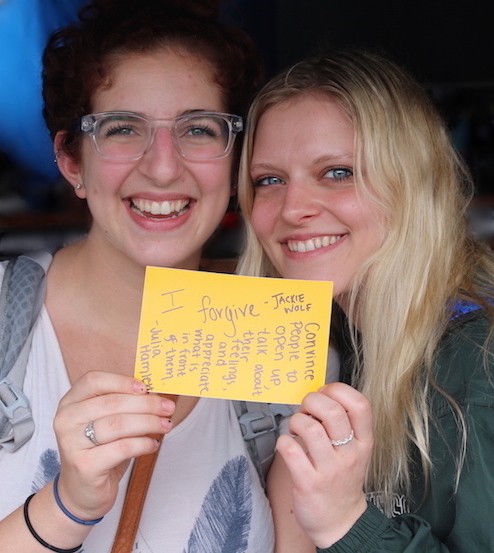 I forgive
- JACKIE
WOLF
Convince
people to
open up
talk about
their
feelings,
and
appreciate
what is
in front
of them.
- Julia
Hamlet